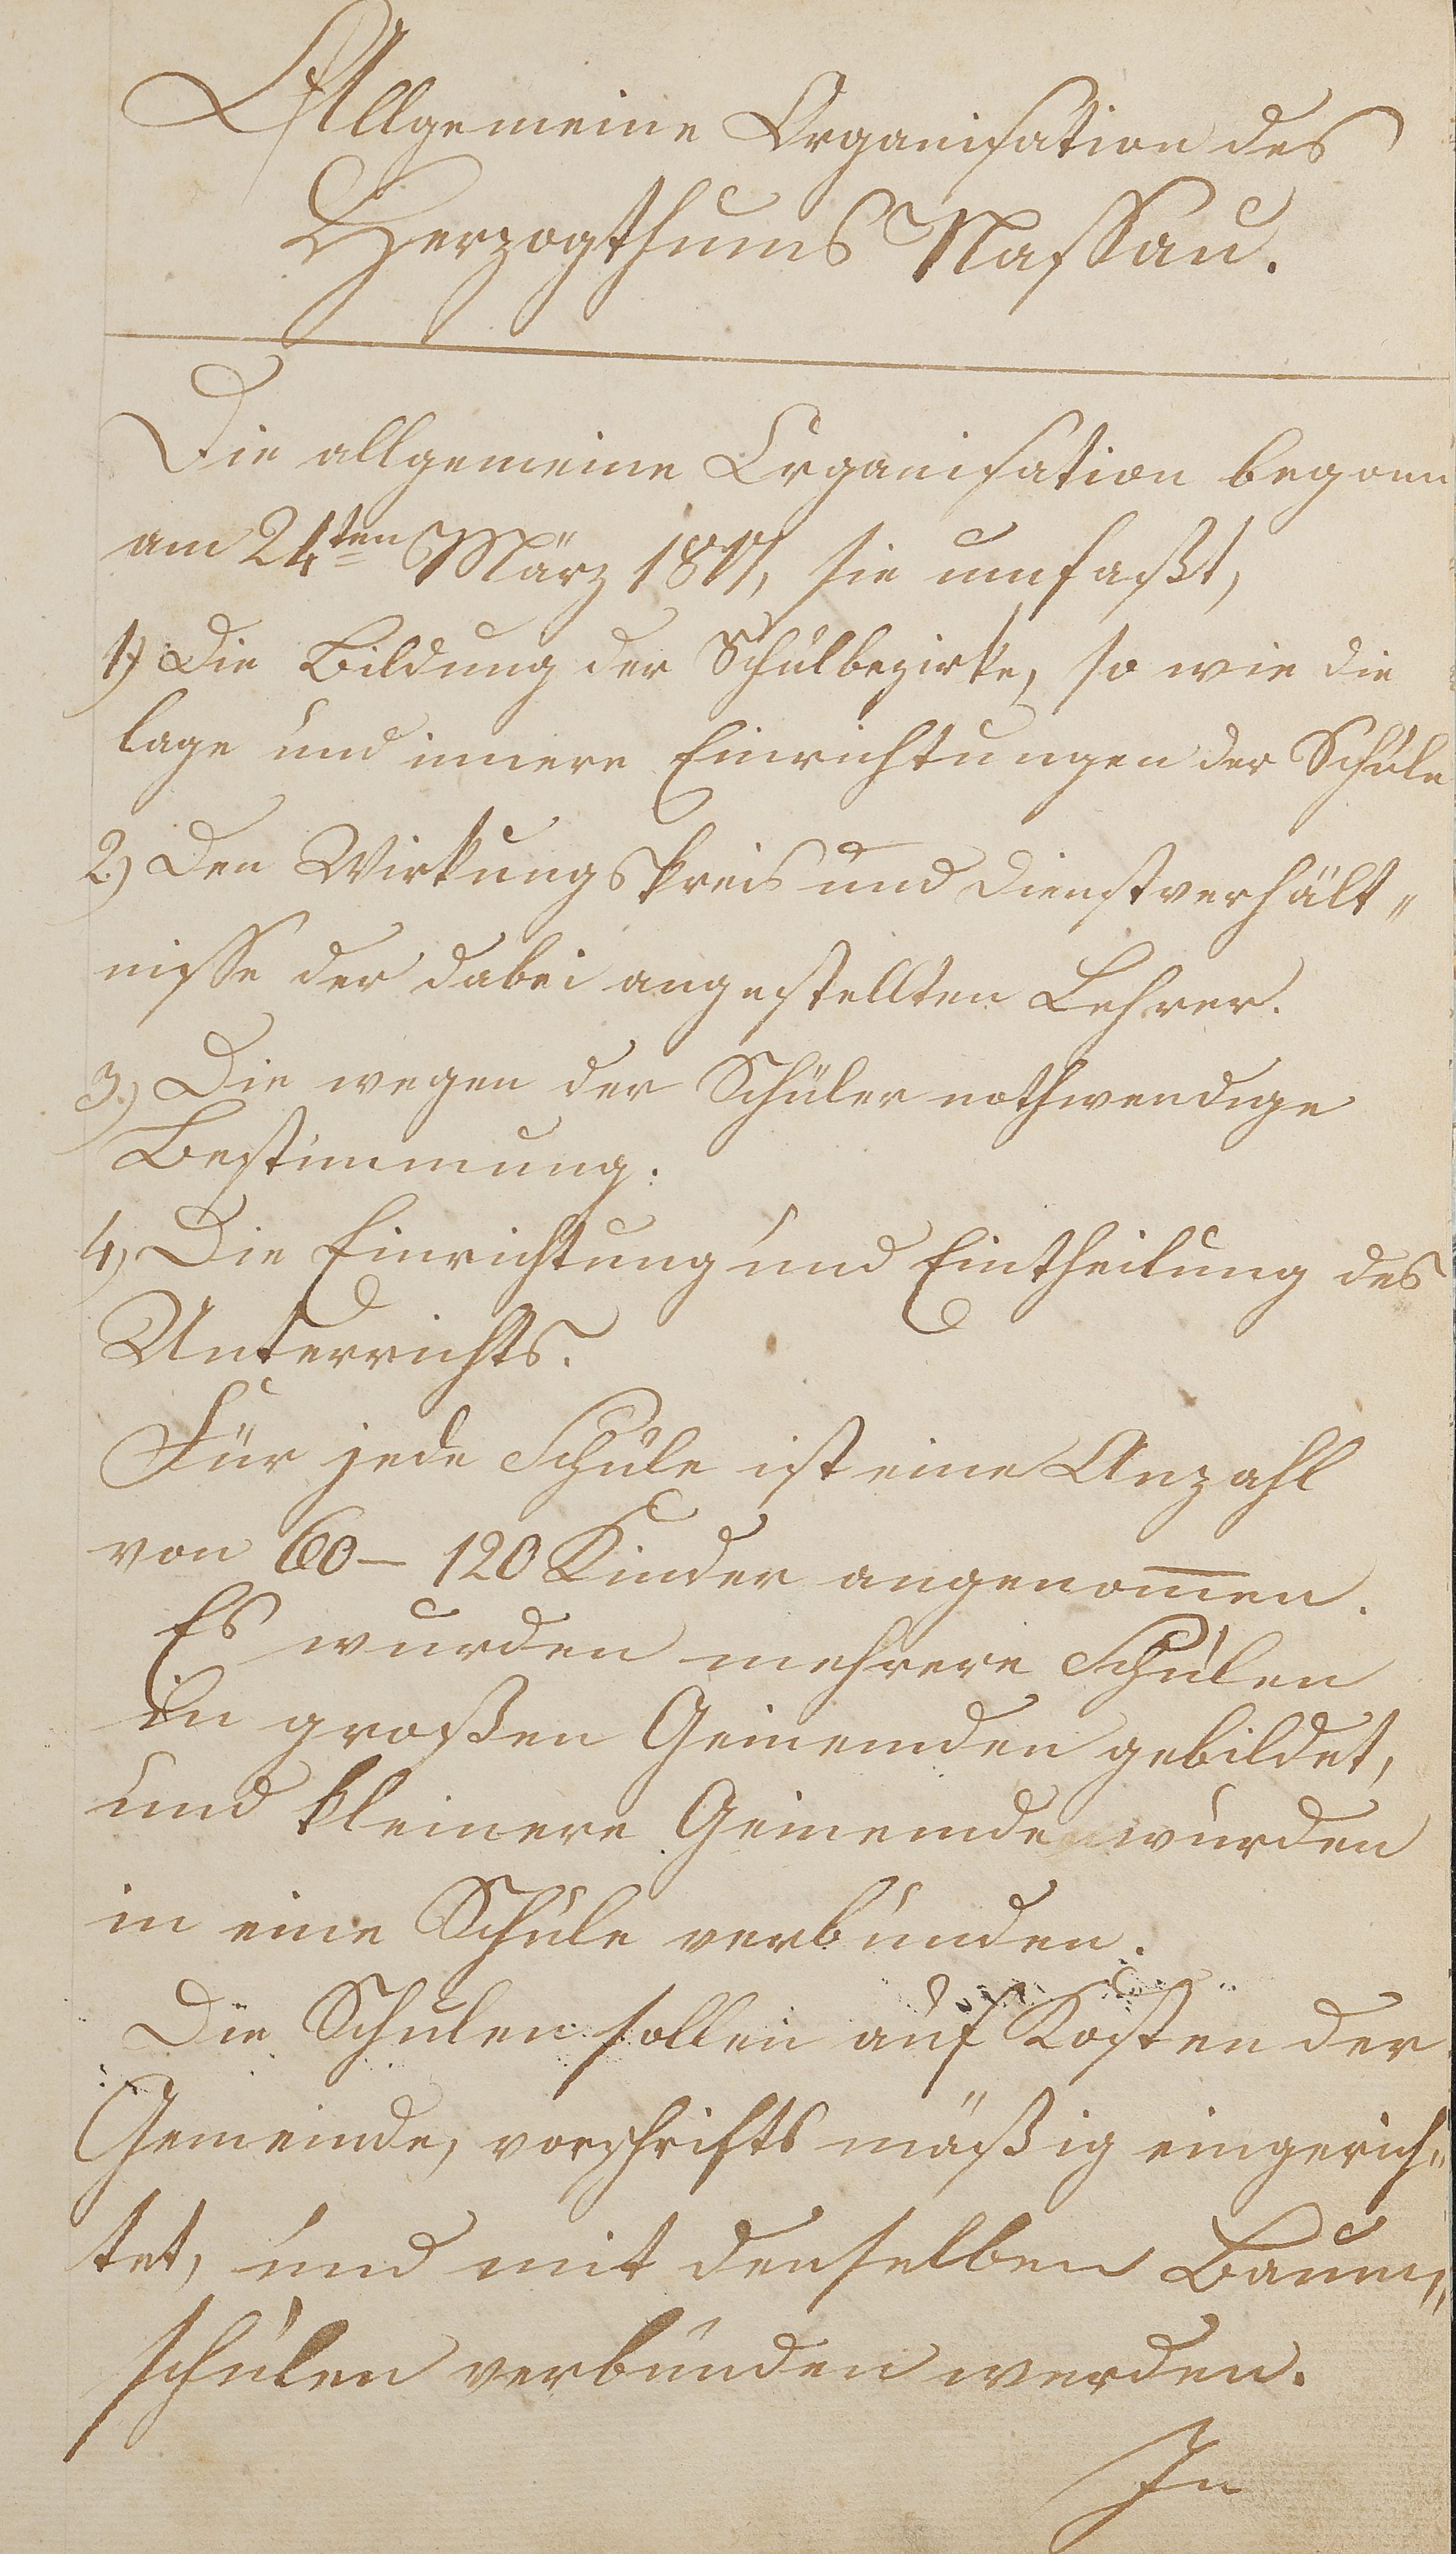 Allgemeine Organisation des
Herzogthums Nassau.
Die allgemeine Organisation begann
am 24ten März 1817, sie umfaßt,
1) Die Bildung der Schulbezirke, so wie die
lage und innere Einrichtungen der Schule
2.) Den Wirkungskreis und Dienstverhält„
nisse der dabei angestellten Lehrer.
3.) Die wegen der Schüler nothwendige
Bestimmung.
4) Die Einrichtung und Eintheilung des
Unterrichts.
Für jede Schule ist eine Anzahl
von 60 – 120 Kinder angenom̅en.
Es wurden mehrere Schulen
in großen Gemeinden gebildet,
und kleinere Gemeinden wurden
in eine Schule verbunden.
Die Schulen sollen auf Kosten der
Gemeinde, vorschrifts mäßig eingerich„
tet, und mit denselben Baum„
schulen verbunden werden.
In